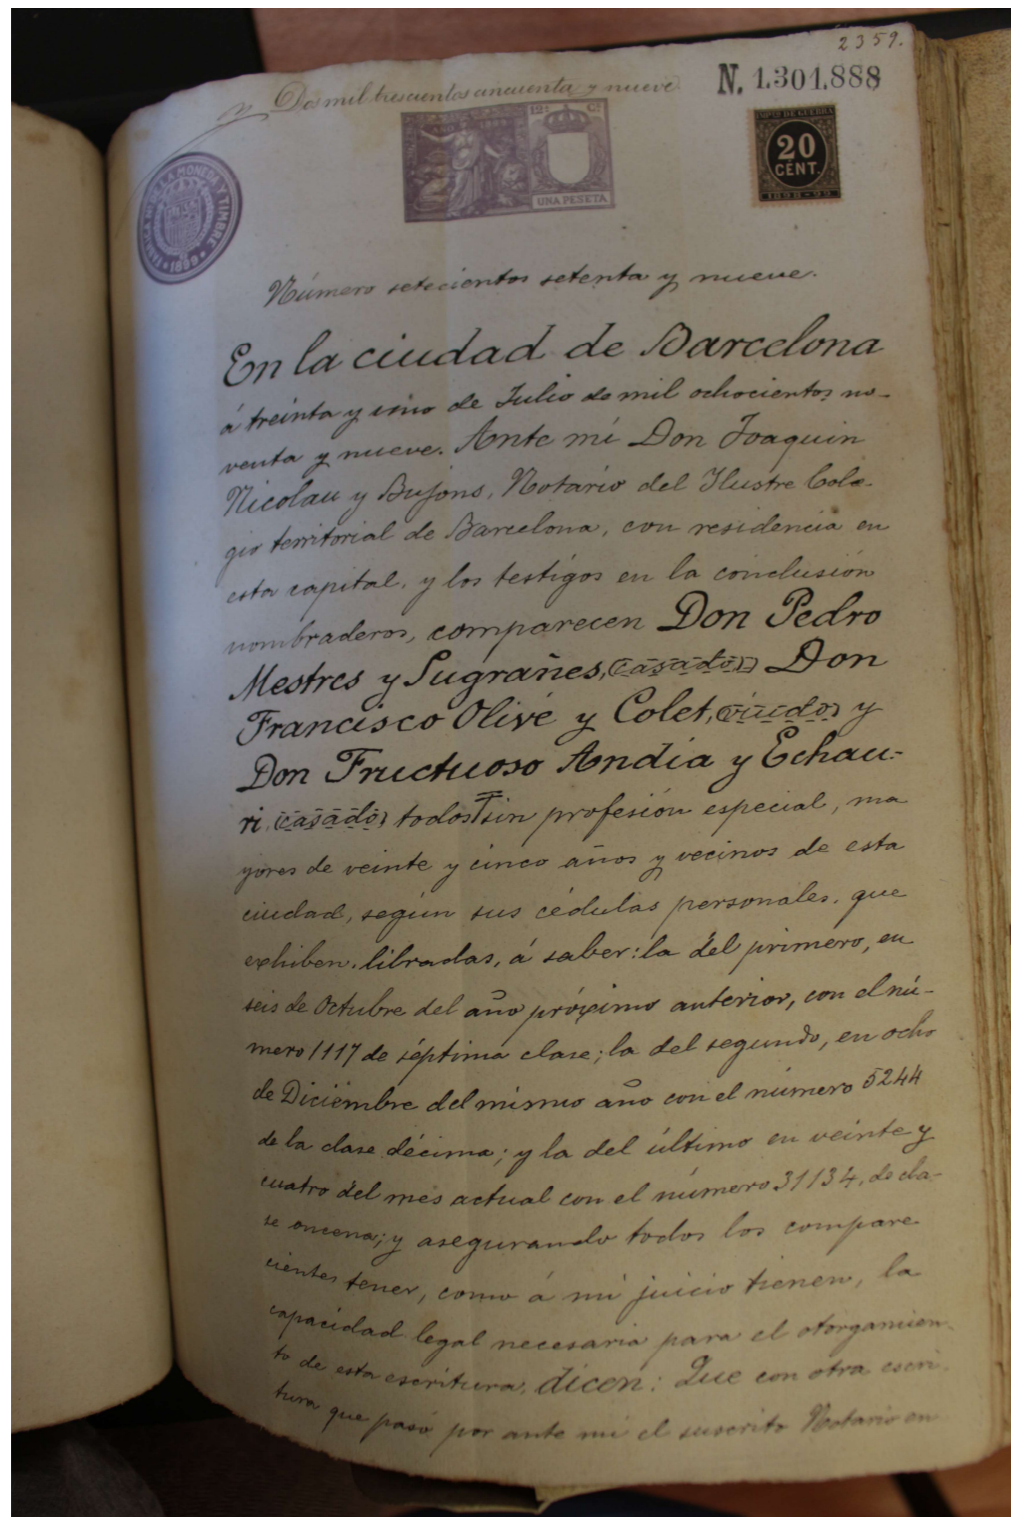 2359.
Dos mil trescientos cincuenta y nueve
N. 1.301.888
12ª Cl.
UNA PESETA
IMPTO DE GUERRA
20
CENT.
1898-99
FABRICA Nal DE LA MONEDA Y TIMBRE
1899
Número setecientos setenta y nueve.
En la ciudad de Barcelona
á treinta y uno de Julio de mil ochocientos no-
venta y nueve. Ante mí Don Joaquin
Nicolau y Bujons, Notario del Ilustre Cole-
gio territorial de Barcelona, con residencia en
esta capital, y los testigos en la conclusión
nombraderos, comparecen Don Pedro
Mestres y Sugrañes, (casado) Don
Francisco Olivé y Colet, (viudo) y
Don Fructuoso Andía y Echau-
ri, (casado) todos sin profesión especial, ma
yores de veinte y cinco años y vecinos de esta
ciudad, según sus cédulas personales, que
exhiben, libradas, á saber: la del primero, en
seis de Octubre del año próximo anterior, con el nú-
mero 1117 de séptima clase; la del segundo, en ocho
de Diciembre del mismo año con el número 5244
de la clase décima; y la del último en veinte y
cuatro del mes actual con el número 31134, de cla-
se oncena; y asegurando todos los compare
cientes tener, como á mi juicio tienen, la
capacidad legal necesaria para el otorgamien-
to de esta escritura, dicen: Que con otra escri-
tura que pasó por ante mi el suscrito Notario en